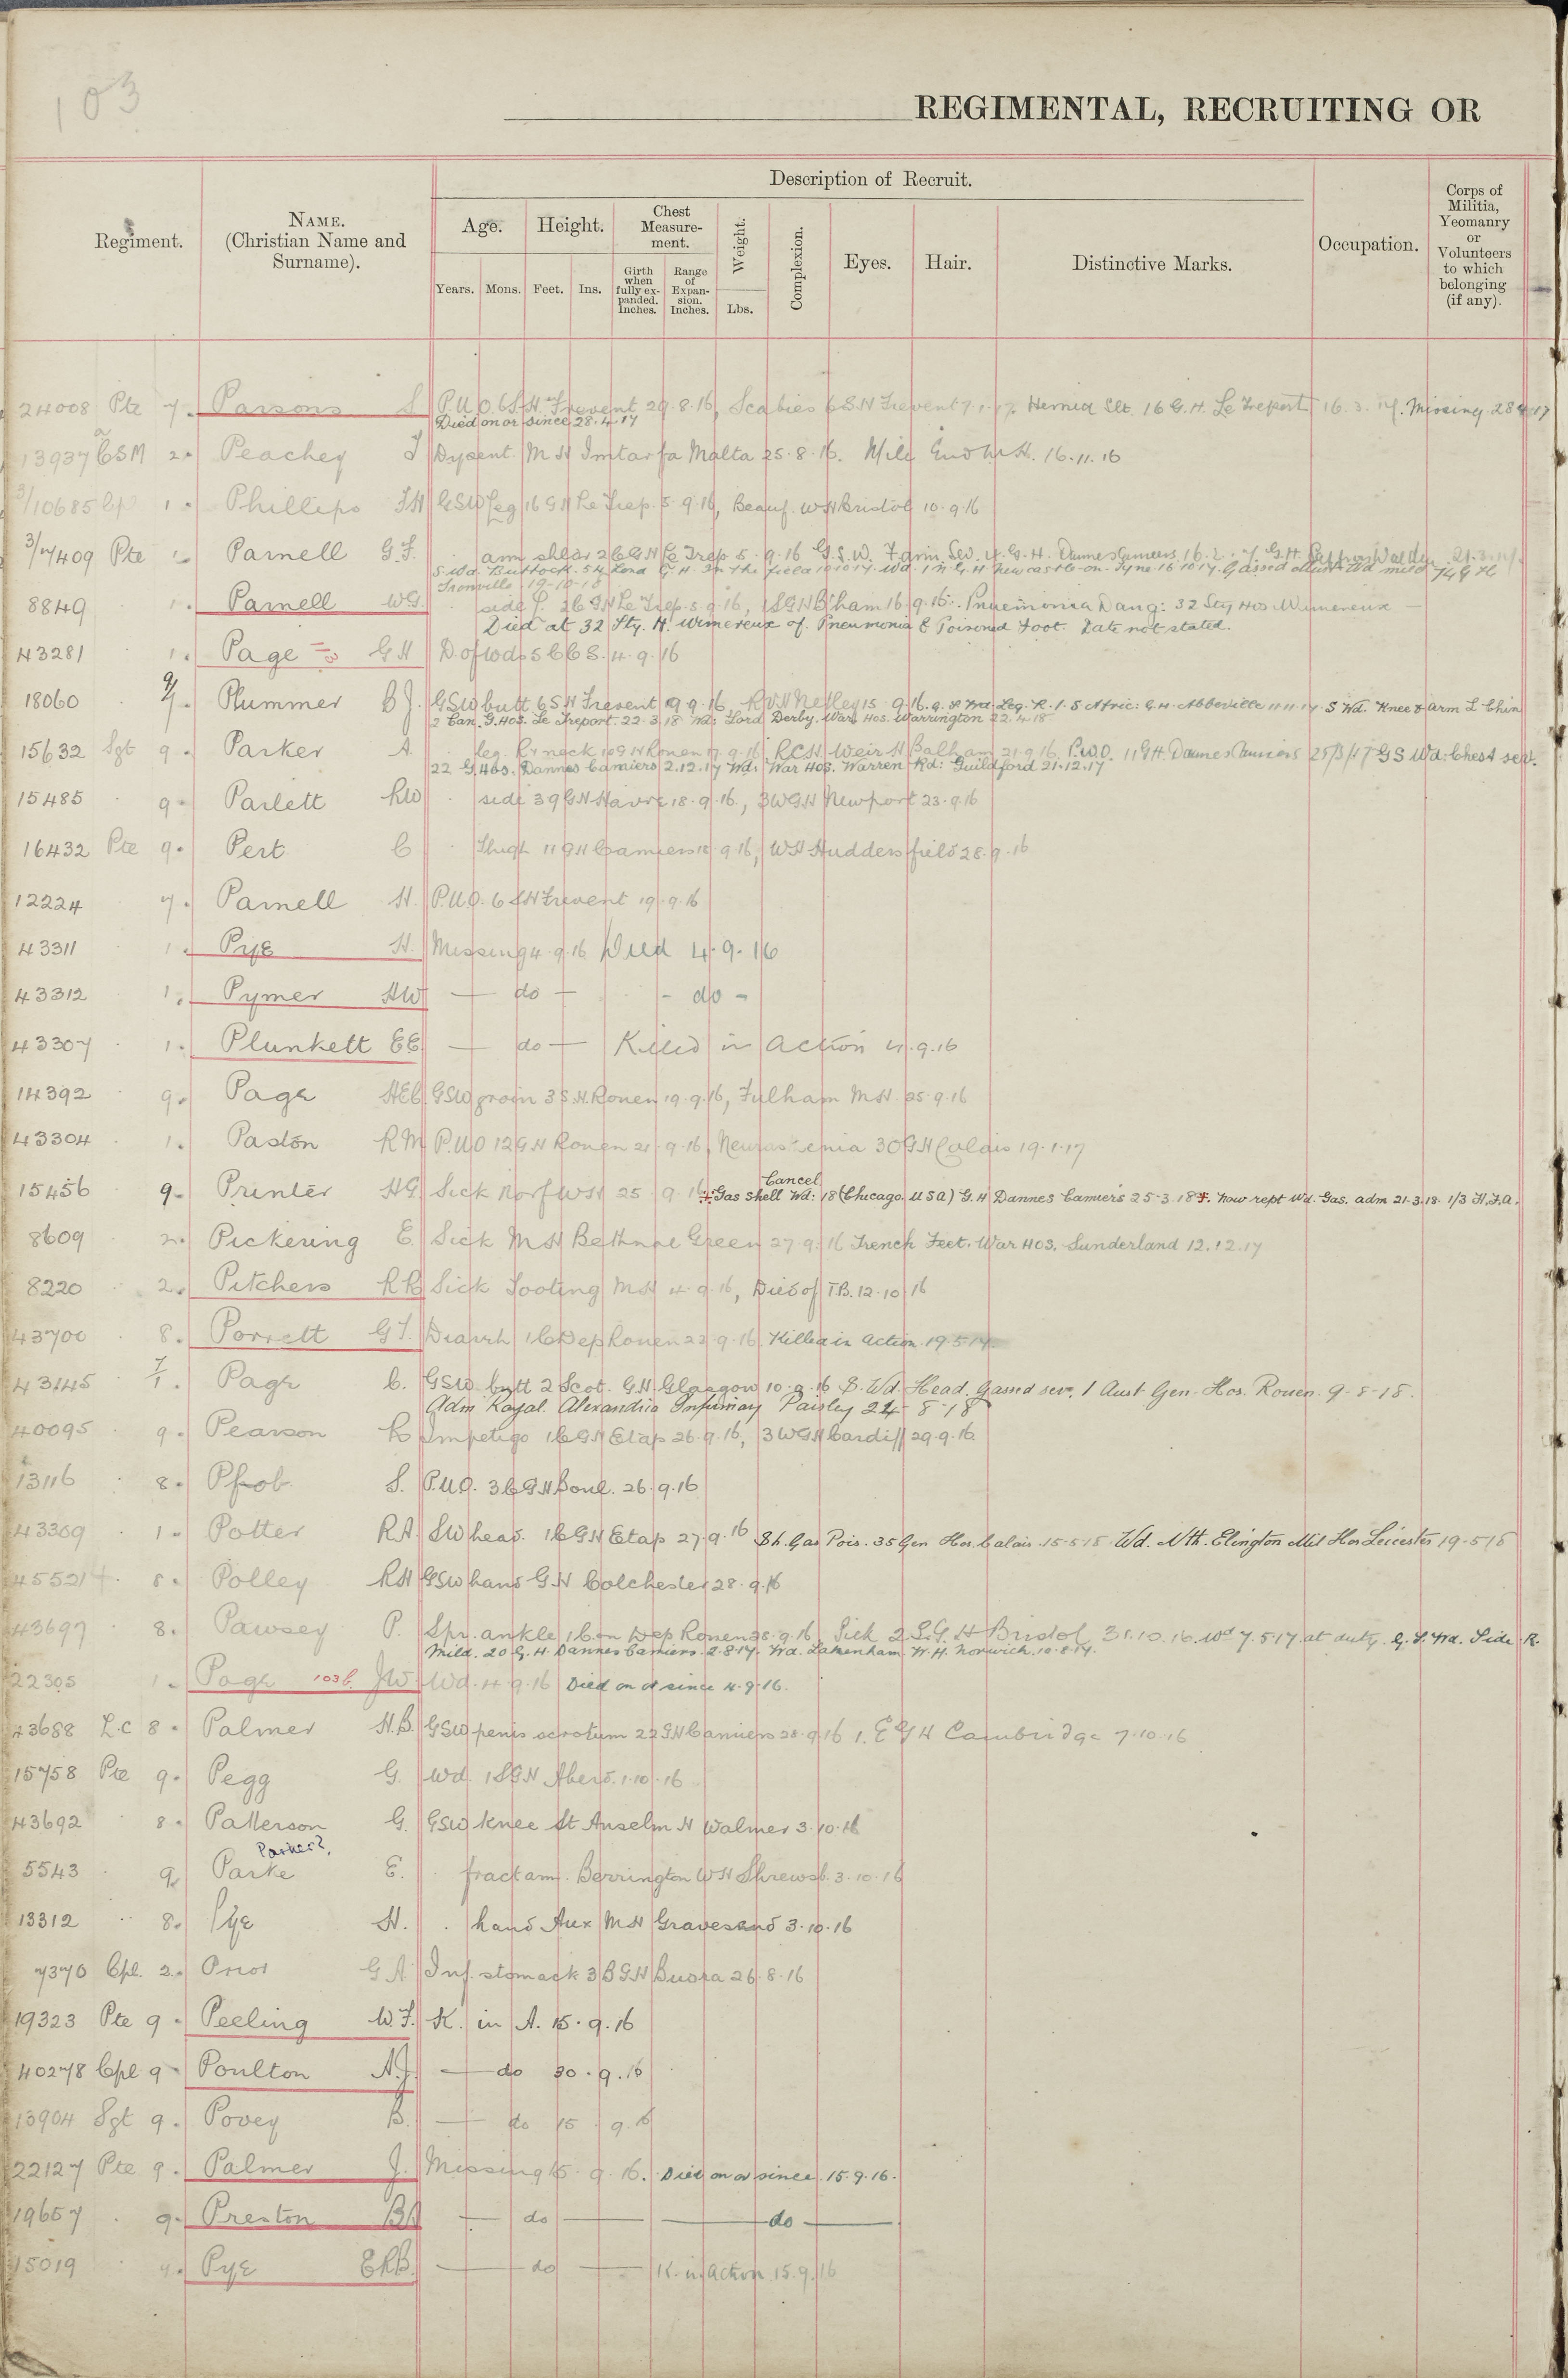 103
REGIMENTAL, RECRUITING OR
Description of Recruit.
Regiment.
NAME.
(Christian Name and
Surname).
Age.
Height.
Chest
Measure-
ment.
Weight.
Complexion.
Eyes.
Hair.
Distinctive Marks.
Occupation.
Corps of
Militia,
Yeomanry
or
Volunteers
to which
belonging
(if any).
Years.
Mons.
Feet.
Ins.
Girth
when
fully ex-
panded.
Inches.
Range
of
Expan-
sion.
Inches.
Lbs.
24008 Pte 7. Parsons S P.U.O. 6 S.H. Frevent 29.8.16, Scabies 6 S.H Frevent 7.1.17. Hernia Slt. 16 G.H. Le Treport 16.3.17. Missing 28.4.17
Died on or since 28.4.17
13937 CSM 2. Peachey J Dysent. M H Imtarfa Malta 25.8.16. Mile End M.H. 16.11.16
3/10685 Cpl 1. Phillips FH GSW leg 16 GH Le Trep. 5.9.16, Beauf. WH Bristol 10.9.16
3/7409 Pte 1. Parnell G.F. arm shldr 2 C GH Le Trep 5.9.16 G.S.W. F'arm Sev. 4. G.H. Dannes Camiers 16.2.17 G.H. Saffron Walden 21.3.17.
S. Wd. Buttock. 54 Lond G H In the field 10 10 17 Wd. 1 N.G.H Newcastle-on-Tyne 16 10 17 Gassed
Trouville 19-10-18
8849 1. Parnell WG. side 2 C GH Le Trep. 5.9.16, 1 SGH B'ham 16.9.16. Pneumonia Dang: 32 Sty Hos Wimereux —
Died at 32 Sty. H. Wimereux of Pneumonia & Poisoned Foot. Date not stated.
43281 1. Page GH D. of Wds 5 CCS. 4.9.16
18060 Plummer BJ. GSW butt 6 SH Frevent 9.9.16, RVH Netley 15.9.16. G.S. Wd. Leg. R. 1. S Afric: G.H. Abbeville 11.11.17 S Wd. Knee & Arm L Chin
2 Can. G. Hos. Le Treport. 22.3.18 Wd: Lord Derby War Hos. Warrington 22.4.18
15632 Sgt 9. Parker A. leg. R. neck 10 GH Rouen 17.9.16 RCH Weir H Balham 21.9.16. P.U.O. 11 GH. Dannes Camiers 25/3/17 G S Wd: Chest sev.
22 G. Hos. Dannes Camiers 2.12.17 Wd: War Hos. Warren Rd: Guildford 21.12.17
15485 9. Parlett RW side 39 GH Havre 18.9.16, 3 WGH Newport 23.9.16
16432 Pte 9. Pert C Thigh 11 GH Camiers 18.9.16, WH Huddersfield 28.9.16
12224 7. Parnell H. P.U.O. 6 SH Frevent 19.9.16
43311 1. Pye H. Missing 4.9.16 Died 4.9.16
43312 1. Pymer HW — do — - do -
43307 1. Plunkett EE — do — Killed in Action 4.9.16
14392 9. Page HEC. GSW groin 3 S.H. Rouen 19.9.16, Fulham M.H. 25.9.16
43304 1. Paston RM P.U.O 12 GH Rouen 21.9.16, Neurasthenia 30 GH Calais 19.1.17
Cancel
15456 9. Printer HG Sick Norf WH 25.9.16 Gas shell Wd: 18 (Chicago. U S A) G.H Dannes Camiers 25.3.18. Now rept Wd. Gas. adm 21.3.18. 1/3 H.F.A.
8609 2. Pickering E. Sick M H Bethnal Green 27.9.16 Trench Feet. War Hos. Sunderland 12.12.17
8220 2. Pitchers RR Sick Tooting MH 4.9.16, Died of T.B. 12.10.16
43700 8. Porrett GT. Diarrh 1 C Dep Rouen 23.9.16 Killed in Action 19.5.17
43145 7/1. Page C. GSW butt 2 Scot. GH Glasgow 10.9.16 S. Wd. Head. Gassd sev. 1 Aust Gen. Hos. Rouen. 9-8-18.
Adm Royal Alexandria Infirmary Paisley 24-8-18
40095 9. Pearson Impetigo 1 C GH Etap 26.9.16, 3 WGH Cardiff 29.9.16.
13116 8. Pfrob S. P.U.O. 3 C GH Boul. 26.9.16
43309 1. Potter RA. SW head. 1 C GH Etap 27.9.16 Sh. Gas Pois. 35 Gen Hos. Calais 15-5-18 Wd. Nth. Evington Mil Hos Leicester 19-5-18
45521 8. Polley RH GSW hand G.H Colchester 28.9.16
43697 8. Pawsey P. Spr. ankle 1 Con Dep Rouen 28.9.16 Sick 2 S.G. H Bristol 31.10.16. Wd 7.5.17. at duty. G.S. Wd. Side R.
Mild. 20 G. H. Dannes Camiers. 2.8.17. Wd. Lakenham. W.H. Norwich. 10.8.17.
22305 1. Page 103b. JW. Wd. 4.9.16 Died on or since 4.9.16.
43688 L.C 8. Palmer H.B. GSW penis scrotum 22 GH Camiers 28.9.16 1. E G H Cambridge 7.10.16
15758 Pte 9. Pegg G. Wd. 1 SGH Aberd. 1.10.16
43692 8. Patterson G. GSW knee St Anselm H Walmer 3.10.16
Parker?
5543 9. Parke E. fract arm. Berrington WH Shrewsb. 3.10.16
13312 8. Pye H. hand Aux MH Gravesend 3.10.16
7370 Cpl. 2. Prior G A. Inf. stomach 3 B GH Busra 26.8.16
19323 Pte 9. Peeling W.F. K. in A. 15.9.16
40278 Cpl 9. Poulton A.J. — do 30.9.16
13904 Sgt 9. Povey B. — do 15.9.16
22127 Pte 9. Palmer J. Missing 15.9.16. Died on or since 15.9.16.
19657 9. Preston — do — — do —
15019 Pye ERB. — do — K. in Action 15.9.16